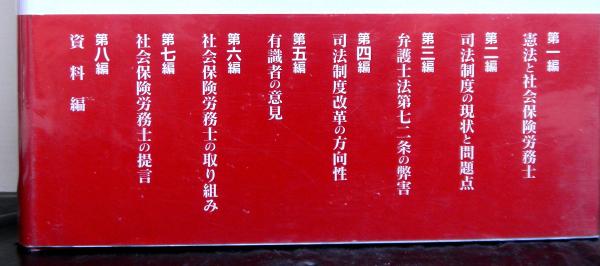 第一編
憲法と社会保険労務士
第二編
司法制度の現状と問題点
第三編
弁護士法第七二条の弊害
第四編
司法制度改革の方向性
第五編
有識者の意見
第六編
社会保険労務士の取り組み
第七編
社会保険労務士の提言
第八編
資料編